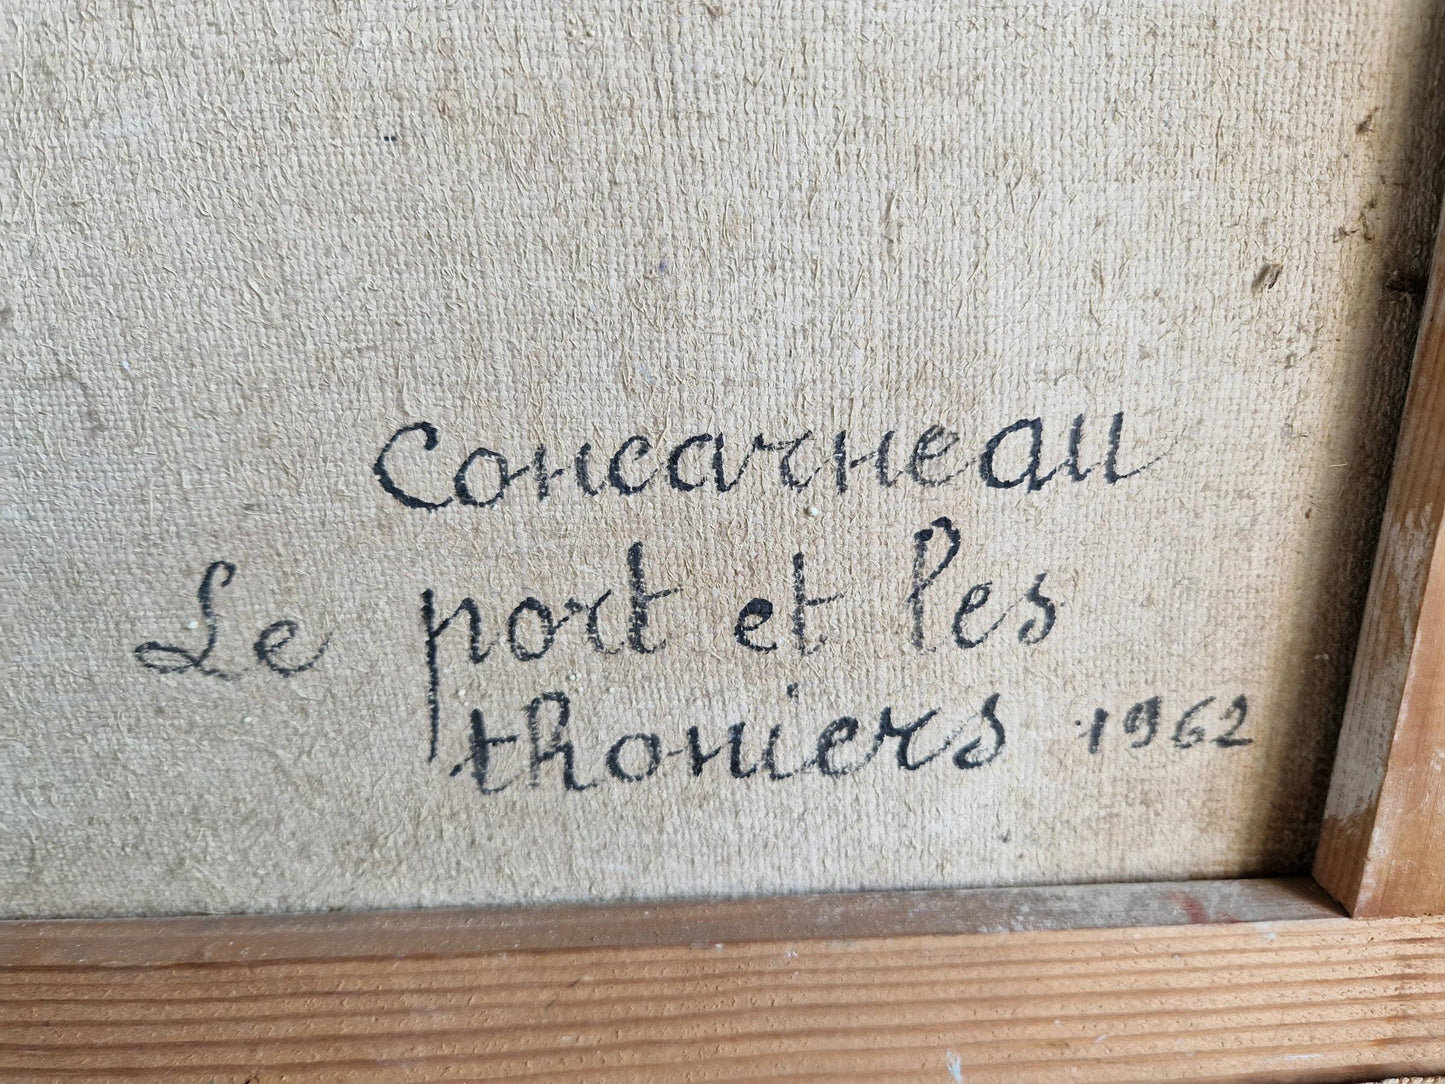 Concarneau
Le port et les
thoniers 1962